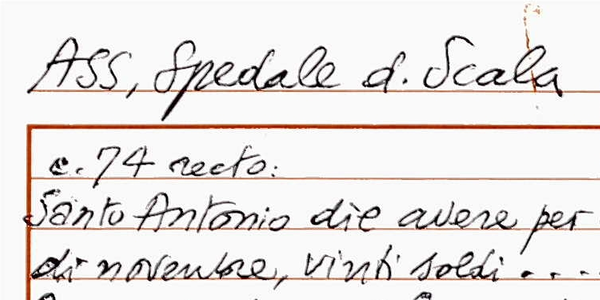 ASS, Spedale d. Scala
c. 74 recto:
Santo Antonio die avere per
di novenbre, vinti soldi . . . .